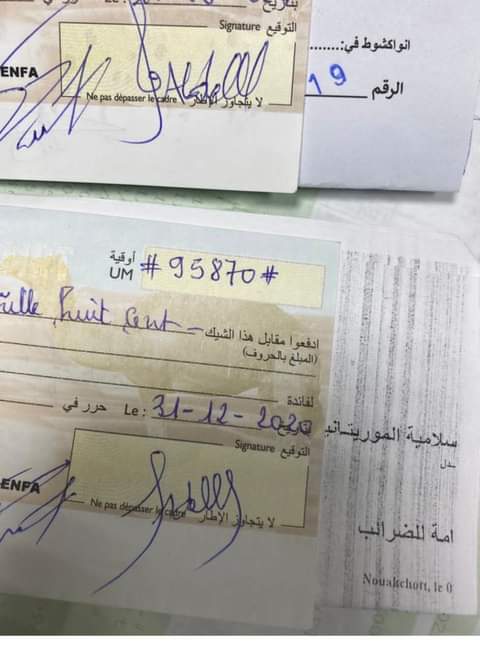 بتاريخ
Signature التوقيع
ENFA
Ne pas dépasser le cadre لا يتجاوز الإطار
انواكشوط في:.......
الرقم 19
أوقية
UM #95870#
huit cent
ادفعوا مقابل هذا الشيك
(المبلغ بالحروف)
لفائدة
حرر في Le : 31-12-2020
Signature التوقيع
ENFA
Ne pas dépasser le cadre لا يتجاوز الإطار
سلامية الموريتاني
امة للضرائب
Nouakchott, le 0